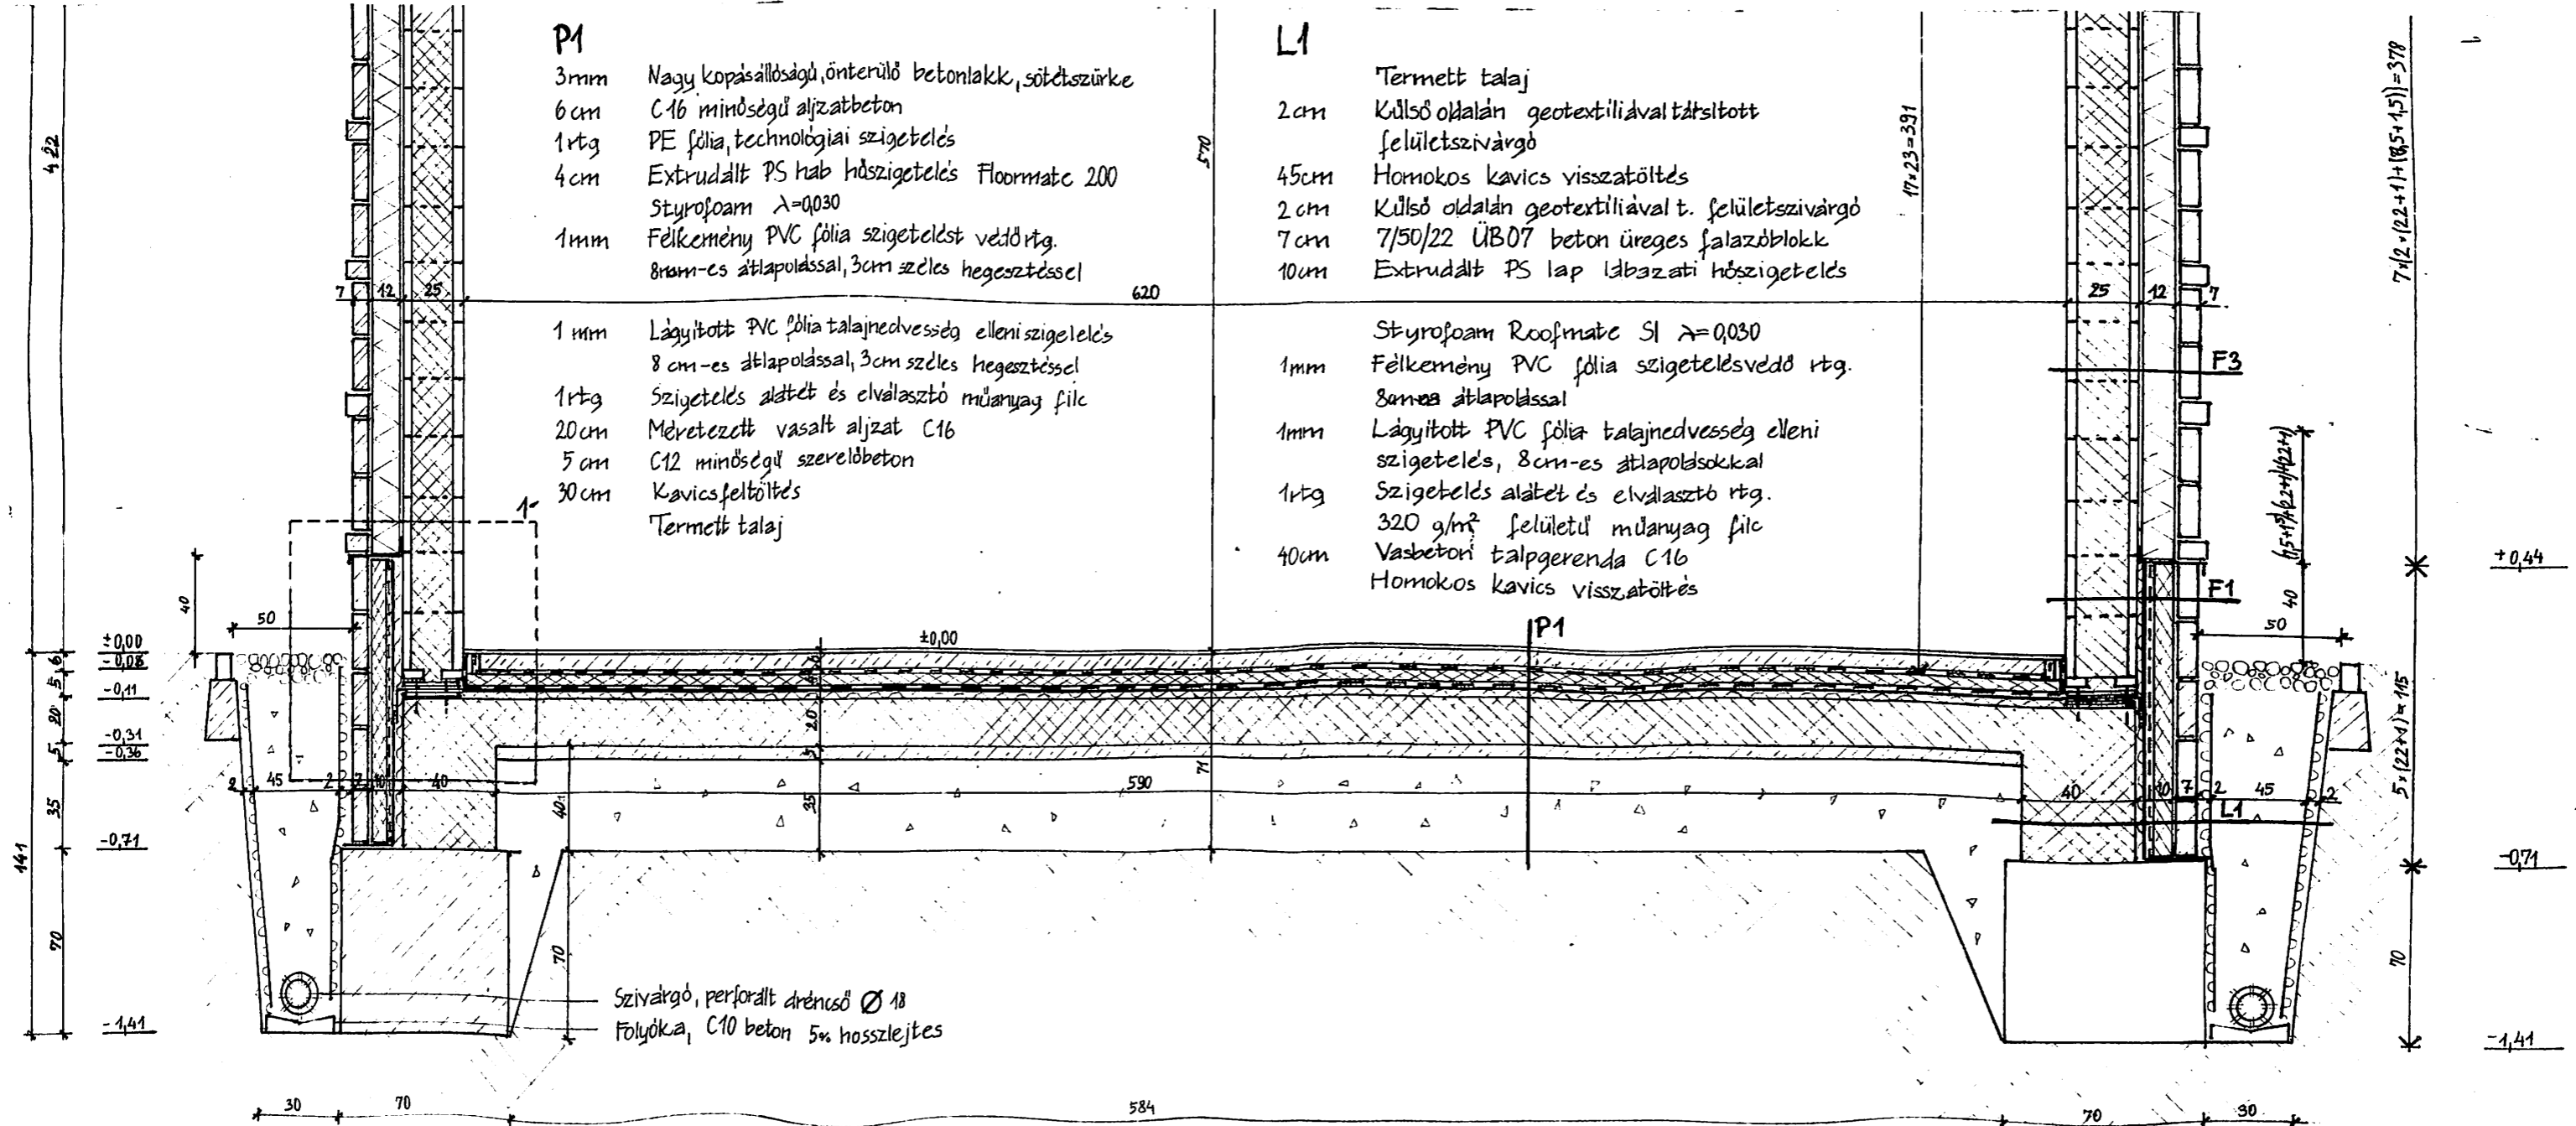 P1
3mm Nagy kopásállóságú, önterülő betonlakk, sötétszürke
6cm C16 minőségű aljzatbeton
1rtg PE fólia, technológiai szigetelés
4cm Extrudált PS hab hőszigetelés Floormate 200
Styrofoam λ=0,030
1mm Félkemény PVC fólia szigetelést védő rtg.
8mm-es átlapolással, 3cm széles hegesztéssel
1 mm Lágyított PVC fólia talajnedvesség elleni szigetelés
8 cm-es átlapolással, 3cm széles hegesztéssel
1rtg Szigetelés alátét és elválasztó műanyag filc
20cm Méretezett vasalt aljzat C16
5 cm C12 minőségű szerelőbeton
30cm Kavicsfeltöltés
Termett talaj
L1
Termett talaj
2cm Külső oldalán geotextíliával társított
felületszivárgó
45cm Homokos kavics visszatöltés
2 cm Külső oldalán geotextíliával t. felületszivárgó
7 cm 7/50/22 ÜB07 beton üreges falazóblokk
10cm Extrudált PS lap lábazati hőszigetelés
Styrofoam Roofmate Sl λ=0,030
1mm Félkemény PVC fólia szigetelésvédő rtg.
8cm-es átlapolással
1mm Lágyított PVC fólia talajnedvesség elleni
szigetelés, 8cm-es átlapolásokkal
1rtg Szigetelés alátét és elválasztó rtg.
320 g/m² felületű műanyag filc
40cm Vasbeton talpgerenda C16
Homokos kavics visszatöltés
4,22
570
17×23=391
7 12 25 620 25 12 7
F3
F1
1
+0,44
40
50
±0,00
-0,08
-0,11
-0,31
-0,36
-0,71
-1,41
6
5
20
5
35
70
141
±0,00
P1
20
5
35
71
40
50
5×(22+1)=115
2 45 2 7 10 40 590 40 10 7 2 45 2
L1
40
70
-0,71
70
-1,41
Szivárgó, perforált dréncső Ø 18
Folyóka, C10 beton 5% hosszlejtes
30 70 584 70 30